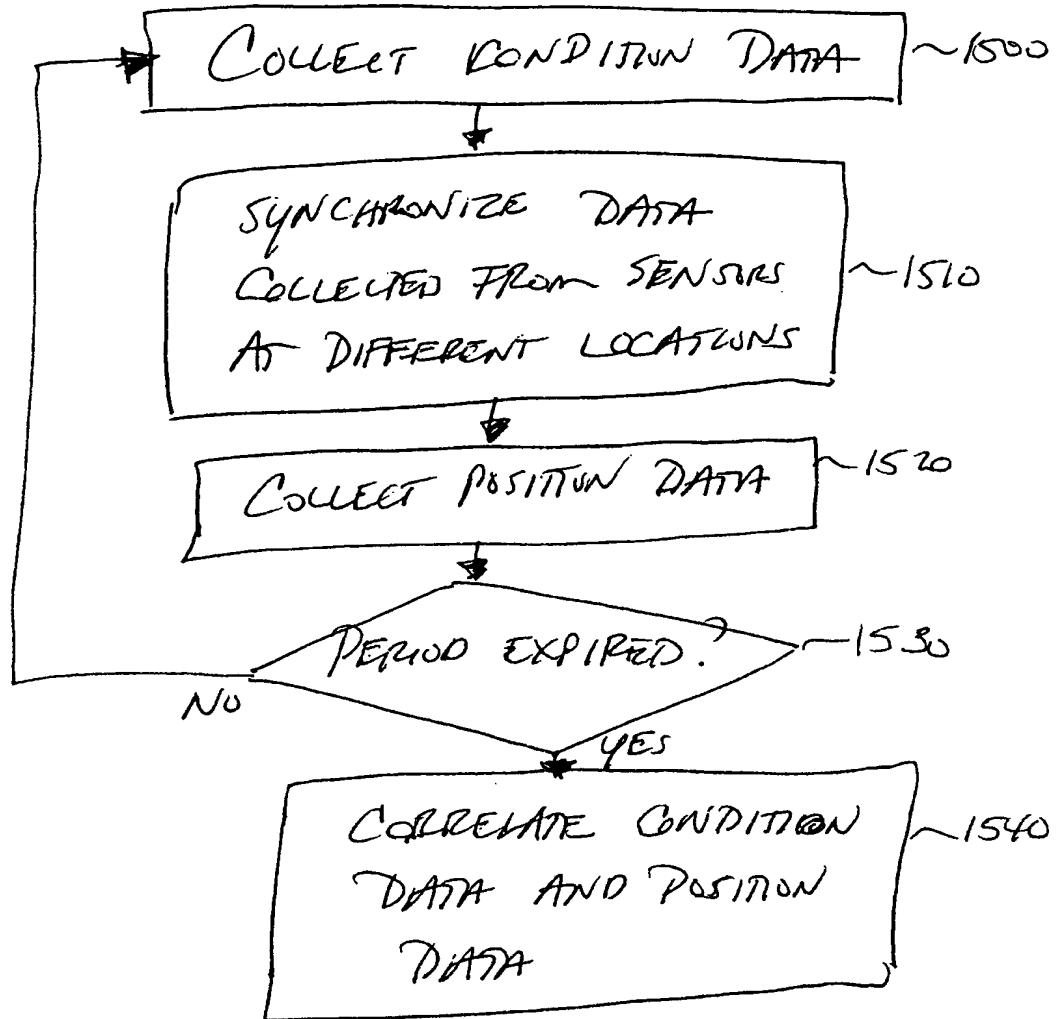 COLLECT CONDITION DATA ~1500
SYNCHRONIZE DATA
COLLECTED FROM SENSORS ~1510
AT DIFFERENT LOCATIONS
COLLECT POSITION DATA ~1520
PERIOD EXPIRED? ~1530
NO
YES
CORRELATE CONDITION ~1540
DATA AND POSITION
DATA